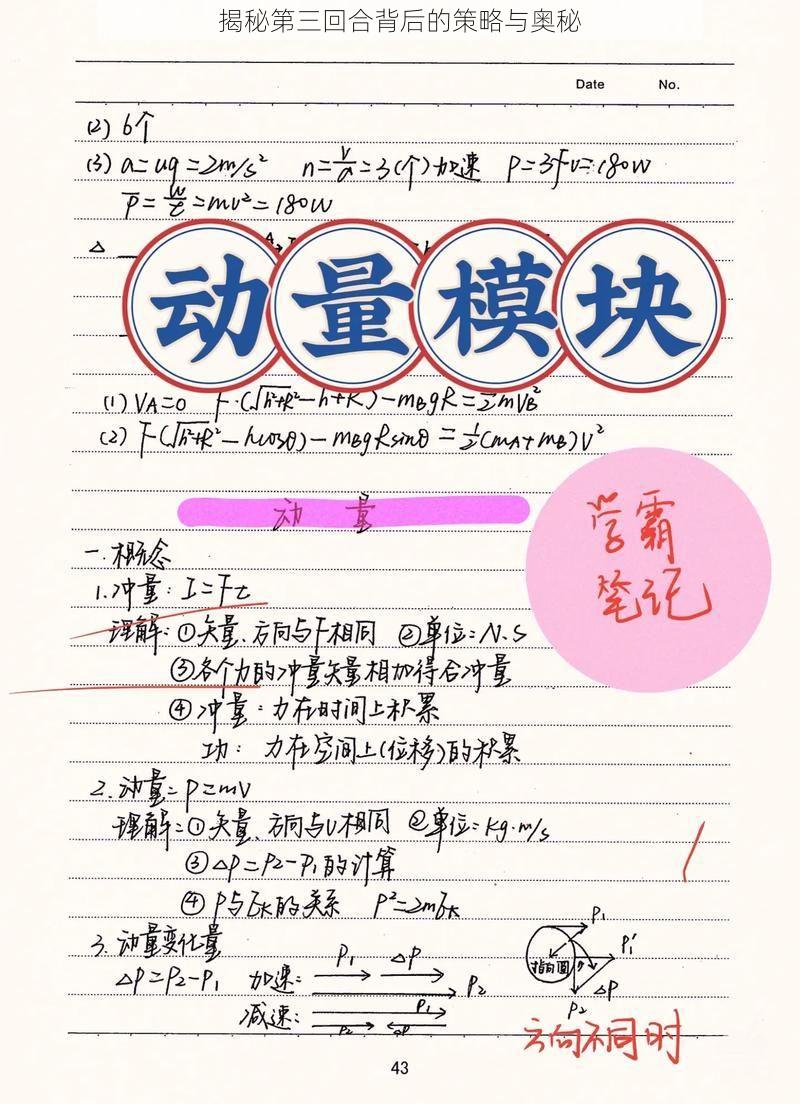 揭秘第三回合背后的策略与奥秘
Date No.
(2) 6个
(3) a=ug=2m/s² n=v/a=3(个)加速 P=3Fv=180W
P̅=W/t=mv²=180W
△
动量模块
(1) VA=0 F·(√h²+R²-h+R)-mBgR=½mVB²
(2) F(√h²+R²-hcosθ)-mBgRsinθ=½(mA+mB)V²
动 量
学霸
笔记
一.概念
1.冲量:I=Ft
理解:①矢量、方向与F相同 ②单位:N.S
③各个力的冲量矢量相加得合冲量
④冲量:力在时间上积累
功: 力在空间上(位移)的积累
2.动量=P=mv
理解:①矢量、方向与v相同 ②单位:kg·m/s
③△P=P2-P1的计算
④P与EK的关系 P²=2mEK
3.动量变化量
△P=P2-P1 加速: P1 △P P2
减速: P1 P2 △P
P1 P1' 指向圆 △P P2
方向不同时
43